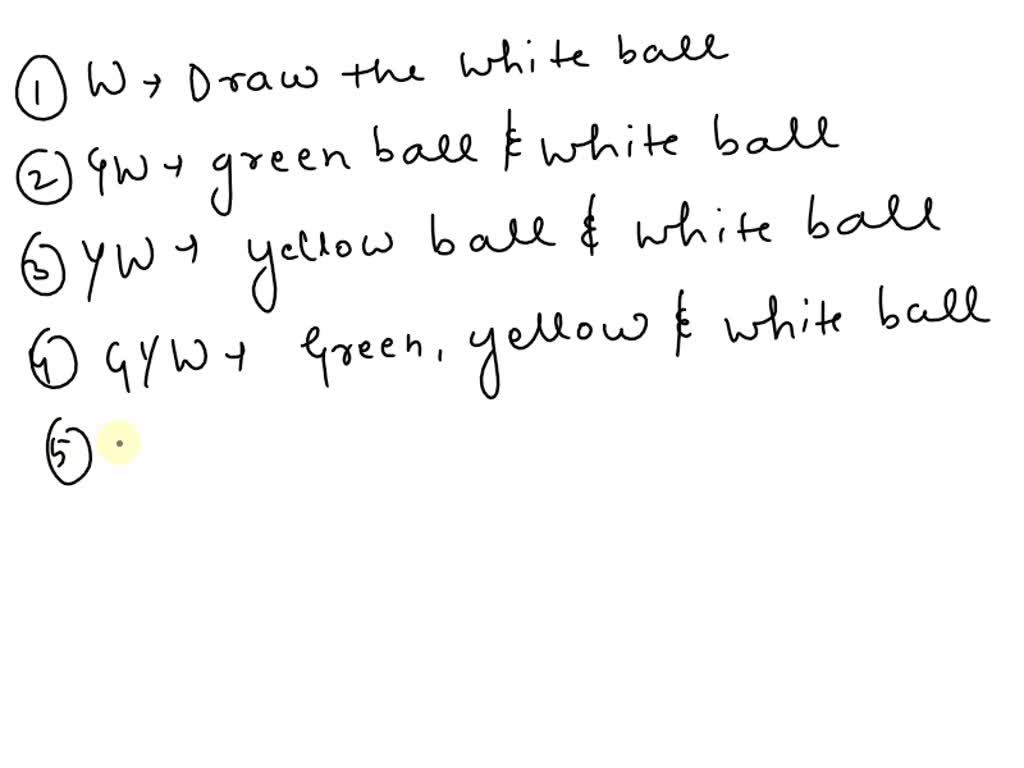 ① W → Draw the white ball
② GW → green ball & white ball
③ YW → yellow ball & white ball
④ GYW → Green, yellow & white ball
⑤